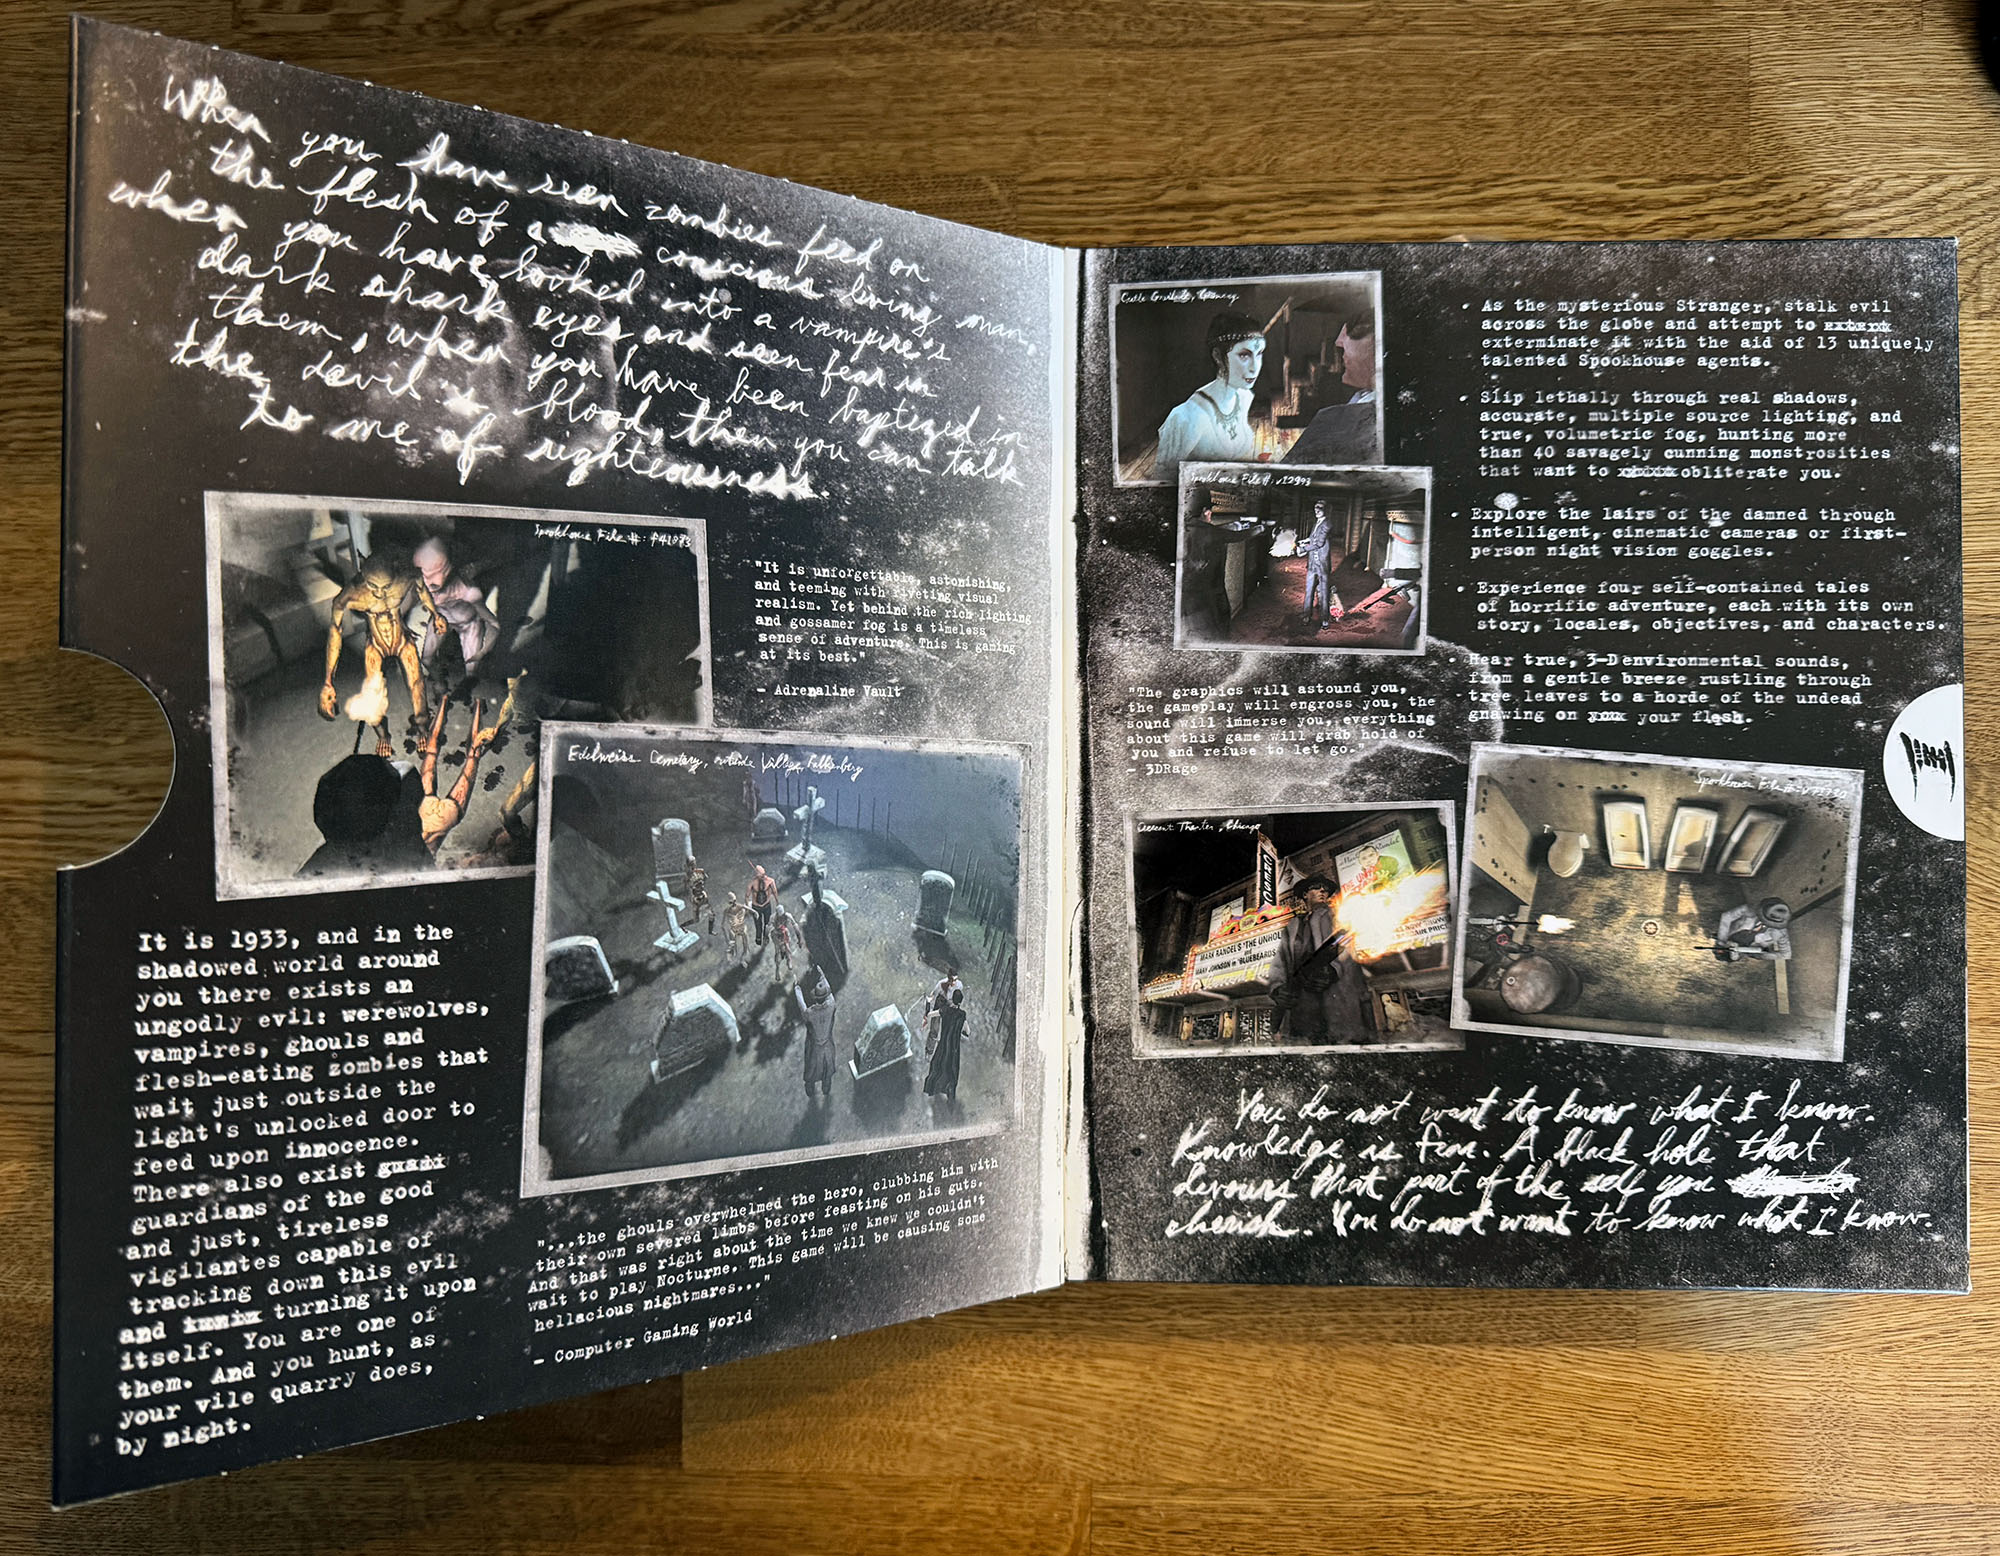 When you have seen zombies feed on
the flesh of a conscious living man,
when you have looked into a vampire's
dark shark eyes and seen fear in
them, when you have been baptized in
the devil's blood, then you can talk
to me of righteousness.
Spookhouse File #:
"It is unforgettable, astonishing,
and teeming with riveting visual
realism. Yet behind the rich lighting
and gossamer fog is a timeless
sense of adventure. This is gaming
at its best."
- Adrenaline Vault
Edelweiss Cemetery, outside Village Falkenberg
It is 1933, and in the
shadowed world around
you there exists an
ungodly evil: werewolves,
vampires, ghouls and
flesh-eating zombies that
wait just outside the
light's unlocked door to
feed upon innocence.
There also exist
guardians of the good
and just, tireless
vigilantes capable of
tracking down this evil
and turning it upon
itself. You are one of
them. And you hunt, as
your vile quarry does,
by night.
"...the ghouls overwhelmed the hero, clubbing him with
their own severed limbs before feasting on his guts.
And that was right about the time we knew we couldn't
wait to play Nocturne. This game will be causing some
hellacious nightmares..."
- Computer Gaming World
Germany
Spookhouse File #:
• As the mysterious Stranger, stalk evil
across the globe and attempt to
exterminate it with the aid of 13 uniquely
talented Spookhouse agents.
• Slip lethally through real shadows,
accurate, multiple source lighting, and
true, volumetric fog, hunting more
than 40 savagely cunning monstrosities
that want to obliterate you.
• Explore the lairs of the damned through
intelligent, cinematic cameras or first-
person night vision goggles.
• Experience four self-contained tales
of horrific adventure, each with its own
story, locales, objectives, and characters.
• Hear true, 3-D environmental sounds,
from a gentle breeze rustling through
tree leaves to a horde of the undead
gnawing on your flesh.
"The graphics will astound you,
the gameplay will engross you, the
sound will immerse you, everything
about this game will grab hold of
you and refuse to let go."
- 3DRage
Crescent Theater, Chicago
MARK RANDEL'S 'THE UNHOL
MARY JOHNSON in 'BLUEBEARDS
Spookhouse File #:
You do not want to know what I know.
Knowledge is fear. A black hole that
devours that part of the self you
cherish. You do not want to know what I know.